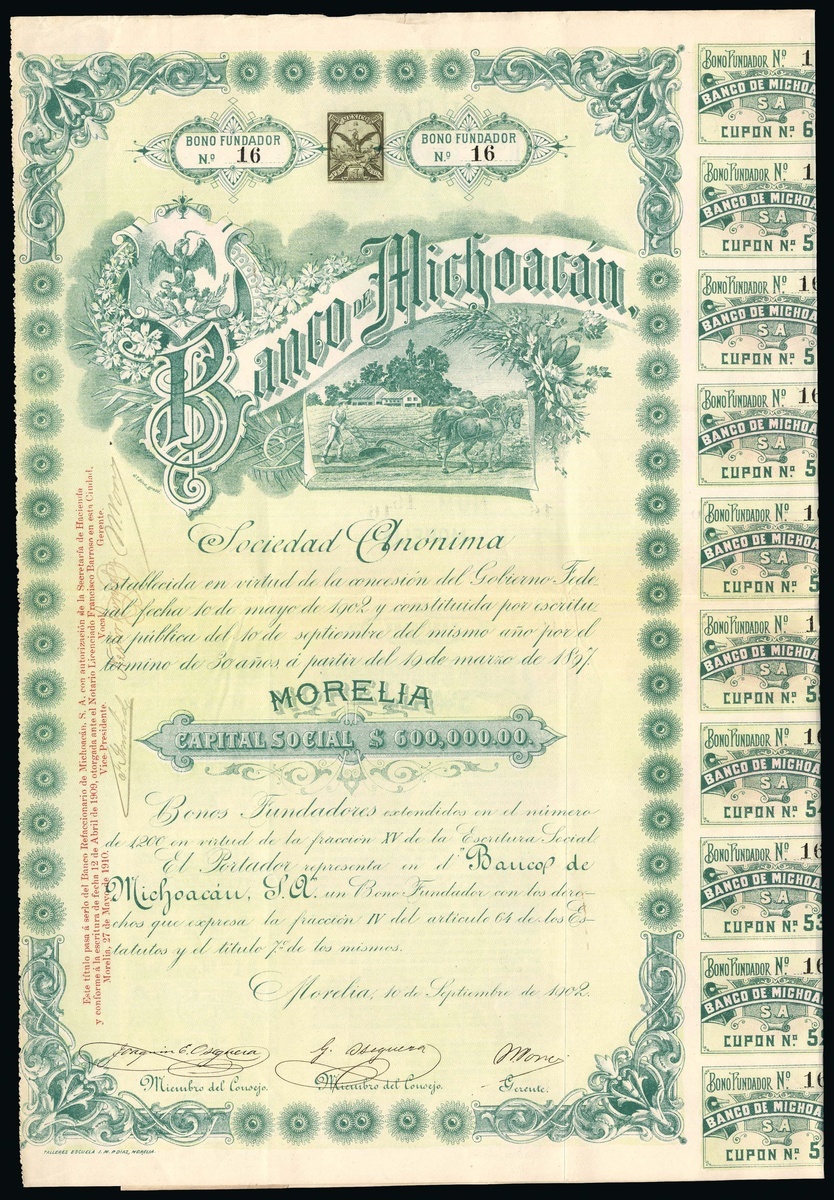 BONO FUNDADOR
N.º 16
MEXICO
BONO FUNDADOR
N.º 16
Banco DE Michoacán,
Sociedad Anónima
establecida en virtud de la concesión del Gobierno Fede-
ral fecha 10 de mayo de 1902 y constituida por escritu-
ra pública del 10 de septiembre del mismo año por el
término de 30 años, á partir del 19 de marzo de 1897.
MORELIA
CAPITAL SOCIAL $ 600,000.00.
Bonos Fundadores extendidos en el número
de 1,200 en virtud de la fracción XV de la Escritura Social.
El Portador representa en el Banco de
Michoacán, S. A. un Bono Fundador con los dere-
chos que expresa la fracción IV del artículo 64 de los Es-
tatutos y el título 7º de los mismos.
Morelia, 10 de Septiembre de 1902.
Joaquin E. Oseguera
G. Oseguera
Miembro del Consejo.
Miembro del Consejo.
Gerente.
TALLERES ESCUELA I. M. P. DIAZ, MORELIA.
Este título pasa á serlo del Banco Refaccionario de Michoacán, S. A. con autorización de la Secretaría de Hacienda
y conforme á la escritura de fecha 12 de Abril de 1909, otorgada ante el Notario Licenciado Francisco Barroso en esta Ciudad.
Morelia, 27 de Mayo de 1910.
Vice-Presidente.
Vocal
Gerente.
BONO FUNDADOR Nº 1
BANCO DE MICHOA
S A
CUPON Nº 6
BONO FUNDADOR Nº 1
BANCO DE MICHOA
S A
CUPON Nº 5
BONO FUNDADOR Nº 16
BANCO DE MICHOA
S A
CUPON Nº 5
BONO FUNDADOR Nº 16
BANCO DE MICHOA
S A
CUPON Nº 5
BONO FUNDADOR Nº 1
BANCO DE MICHOA
S A
CUPON Nº 5
BONO FUNDADOR Nº 1
BANCO DE MICHOA
S A
CUPON Nº 5
BONO FUNDADOR Nº 16
BANCO DE MICHOA
S A
CUPON Nº 54
BONO FUNDADOR Nº 16
BANCO DE MICHOA
S A
CUPON Nº 53
BONO FUNDADOR Nº 16
BANCO DE MICHOA
S A
CUPON Nº 52
BONO FUNDADOR Nº 16
BANCO DE MICHOA
S A
CUPON Nº 5